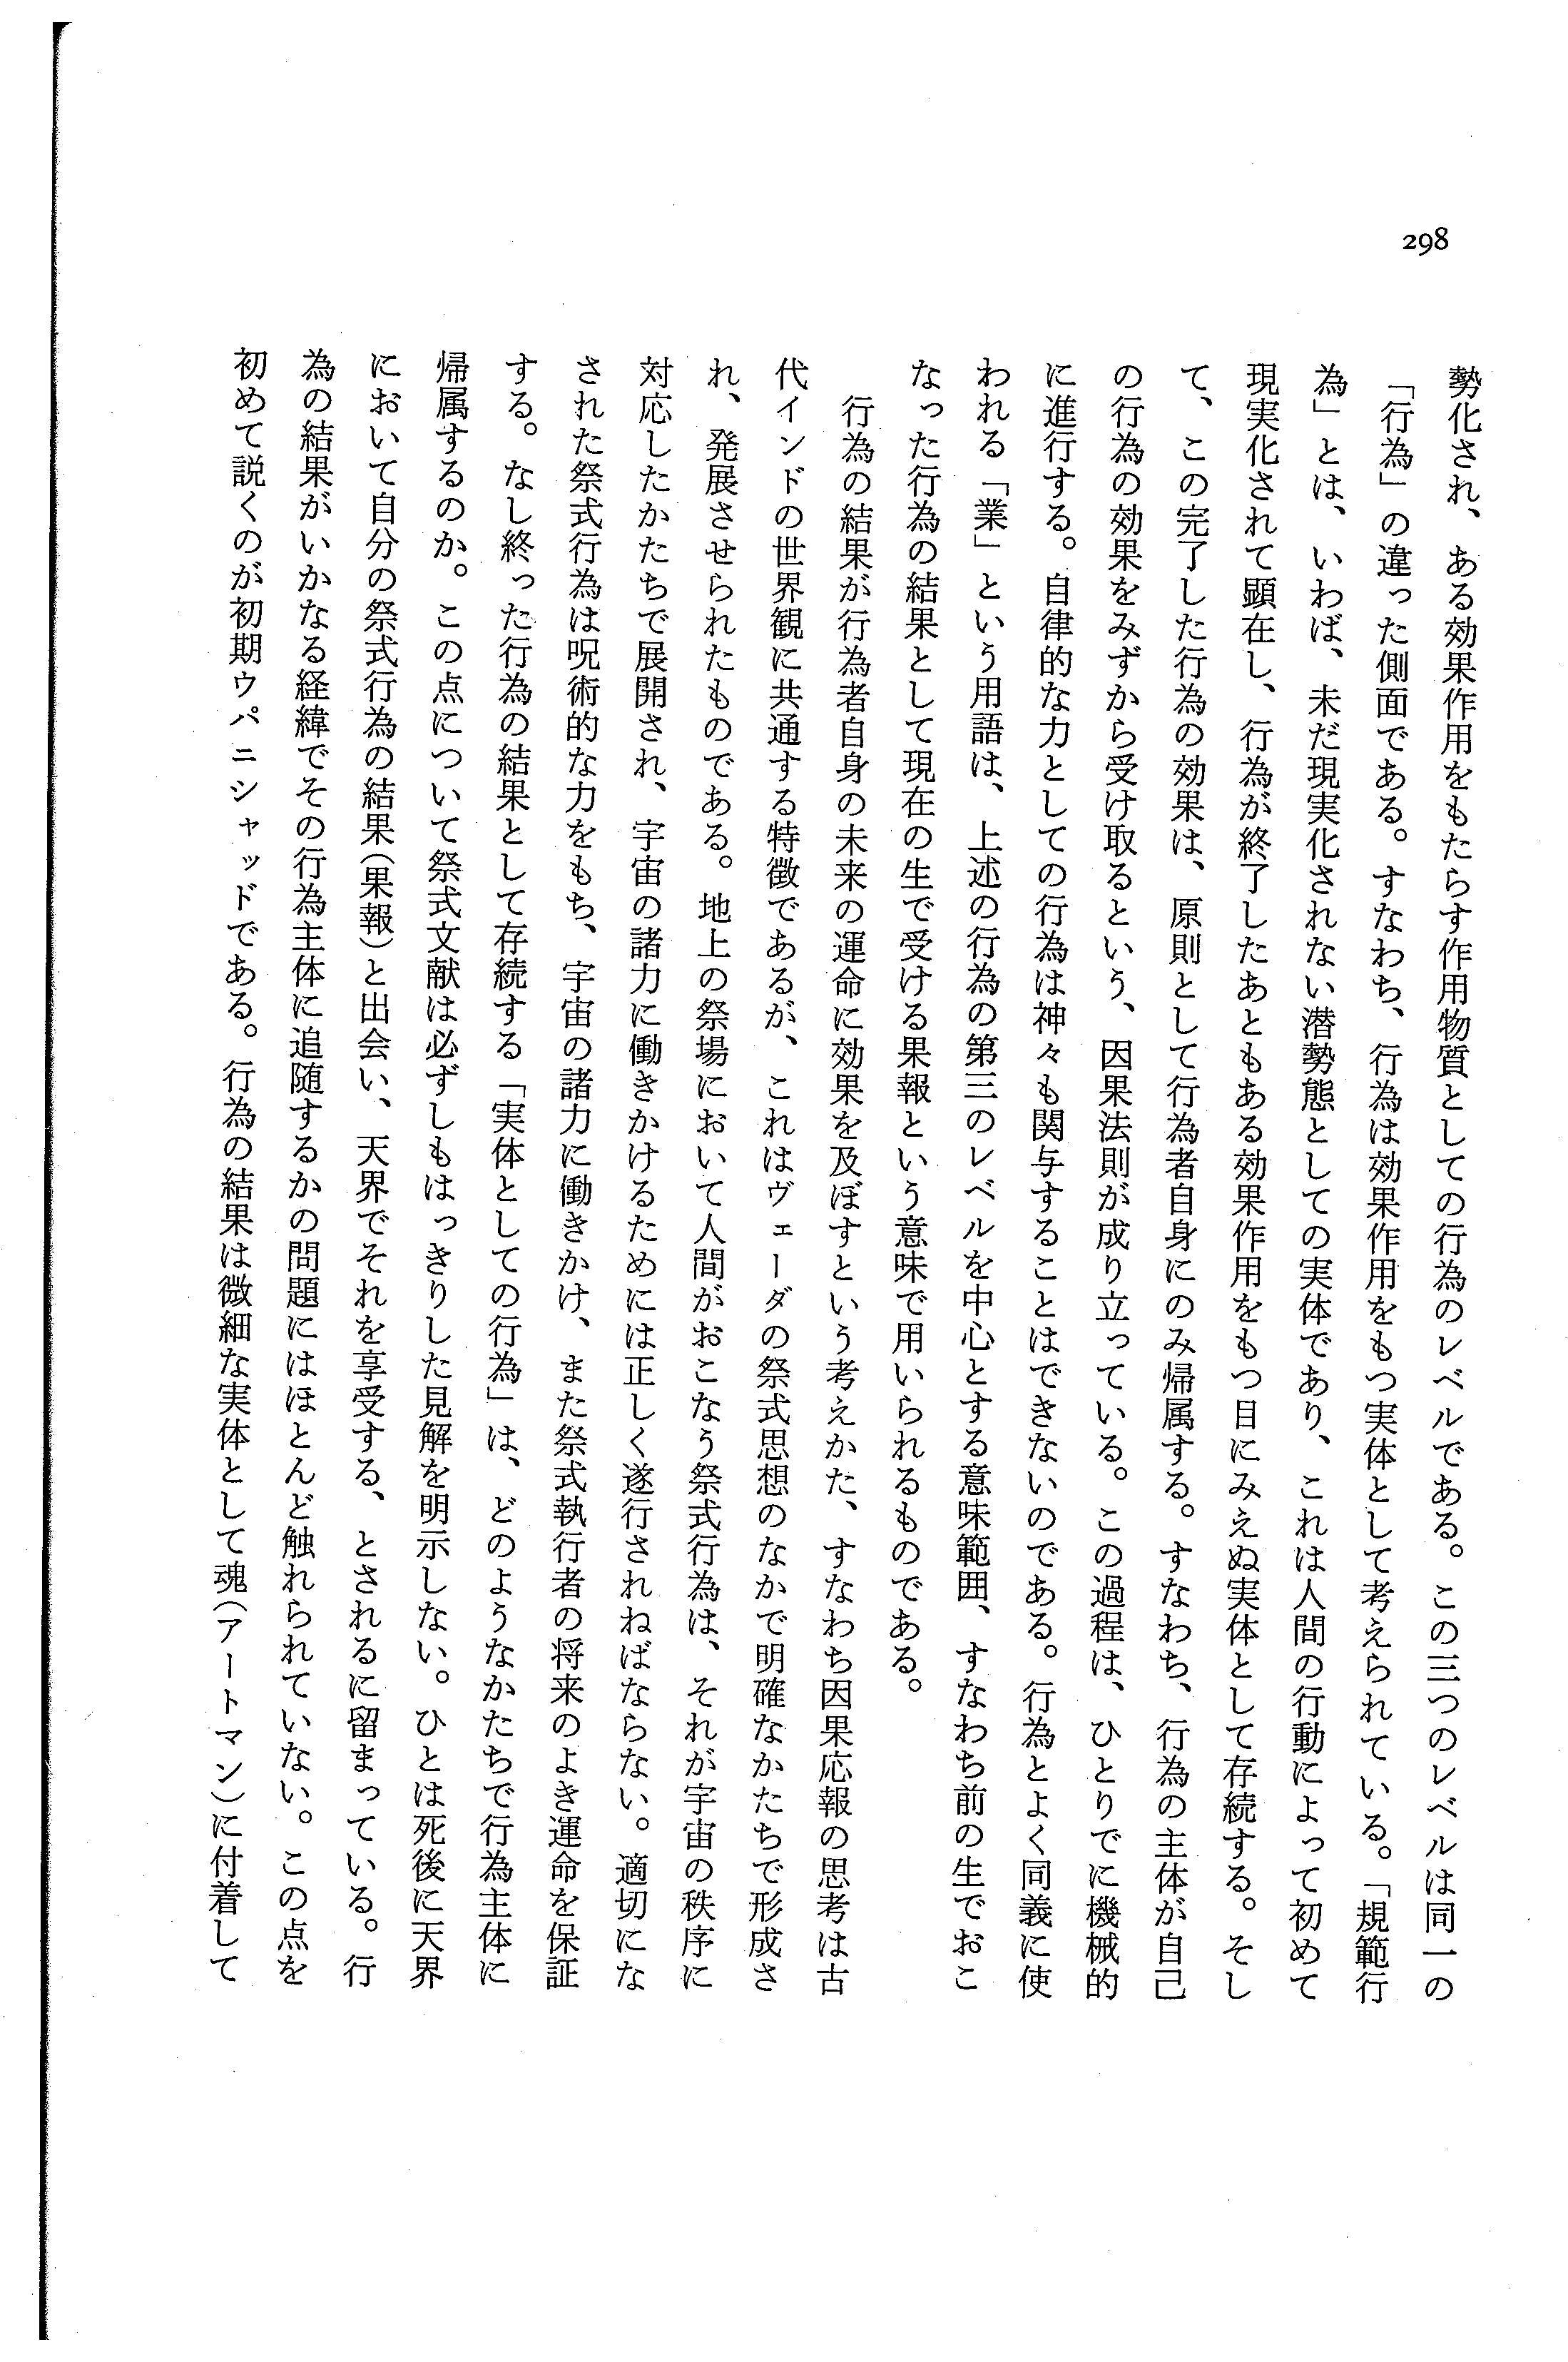 298
勢化され、ある効果作用をもたらす作用物質としての行為のレベルである。この三つのレベルは同一の
「行為」の違った側面である。すなわち、行為は効果作用をもつ実体として考えられている。「規範行
為」とは、いわば、未だ現実化されない潜勢態としての実体であり、これは人間の行動によって初めて
現実化されて顕在し、行為が終了したあともある効果作用をもつ目にみえぬ実体として存続する。そし
て、この完了した行為の効果は、原則として行為者自身にのみ帰属する。すなわち、行為の主体が自己
の行為の効果をみずから受け取るという、因果法則が成り立っている。この過程は、ひとりでに機械的
に進行する。自律的な力としての行為は神々も関与することはできないのである。行為とよく同義に使
われる「業」という用語は、上述の行為の第三のレベルを中心とする意味範囲、すなわち前の生でおこ
なった行為の結果として現在の生で受ける果報という意味で用いられるものである。
行為の結果が行為者自身の未来の運命に効果を及ぼすという考えかた、すなわち因果応報の思考は古
代インドの世界観に共通する特徴であるが、これはヴェーダの祭式思想のなかで明確なかたちで形成さ
れ、発展させられたものである。地上の祭場において人間がおこなう祭式行為は、それが宇宙の秩序に
対応したかたちで展開され、宇宙の諸力に働きかけるためには正しく遂行されねばならない。適切にな
された祭式行為は呪術的な力をもち、宇宙の諸力に働きかけ、また祭式執行者の将来のよき運命を保証
する。なし終った行為の結果として存続する「実体としての行為」は、どのようなかたちで行為主体に
帰属するのか。この点について祭式文献は必ずしもはっきりした見解を明示しない。ひとは死後に天界
において自分の祭式行為の結果（果報）と出会い、天界でそれを享受する、とされるに留まっている。行
為の結果がいかなる経緯でその行為主体に追随するかの問題にはほとんど触れられていない。この点を
初めて説くのが初期ウパニシャッドである。行為の結果は微細な実体として魂（アートマン）に付着して